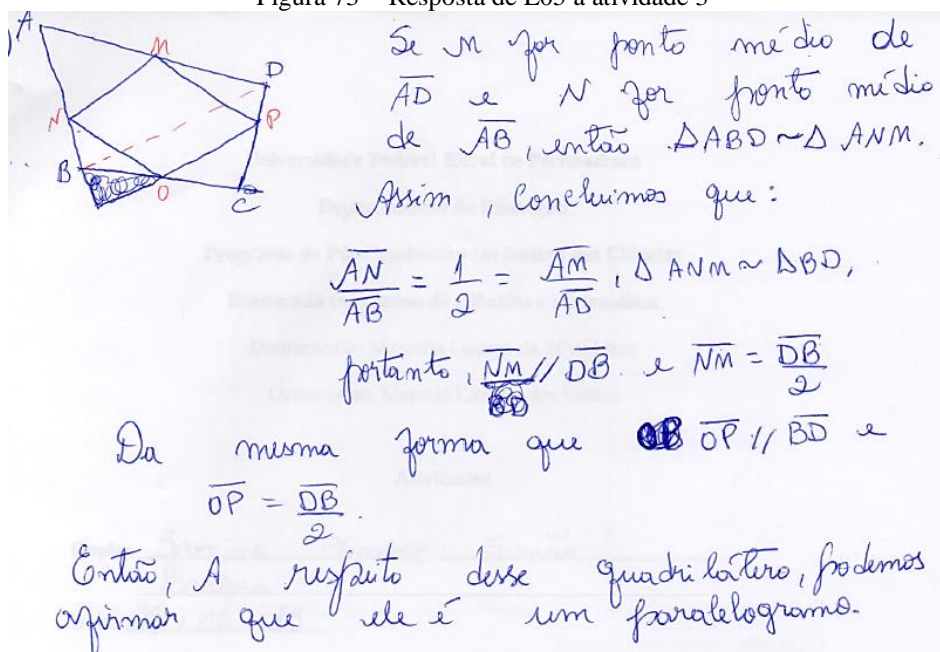 Figura 73 – Resposta de E03 à atividade 3
)
A
M
D
N
P
B
O
C
Se M for ponto médio de
AD e N for ponto médio
de AB, então ΔABD ~ Δ ANM.
Assim, Concluimos que:
AN/AB = 1/2 = AM/AD, Δ ANM ~ ΔBD,
portanto, NM // DB e NM = DB/2
BD
Da mesma forma que OP // BD e
OP = DB/2.
Então, A respeito desse quadrilátero, podemos
afirmar que ele é um paralelogramo.